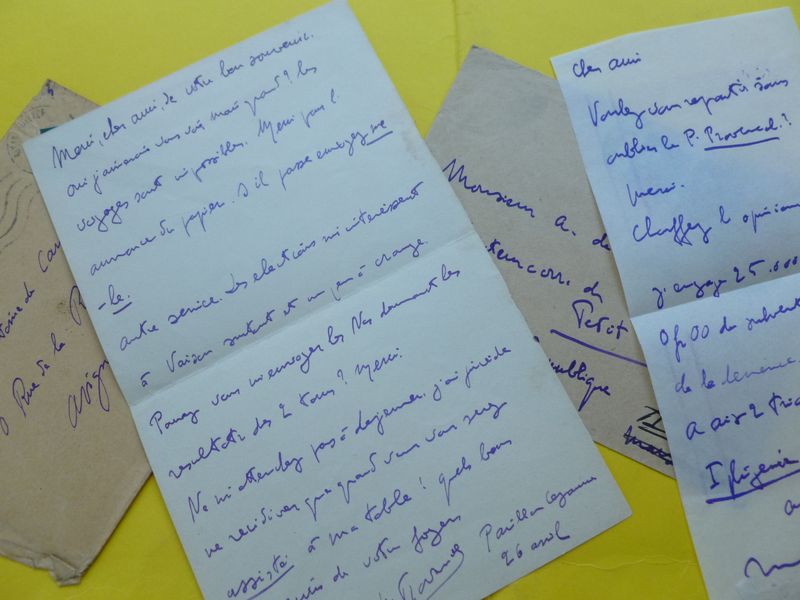 Merci, cher ami, de votre bon souvenir.
oui j'aimerais vous voir mais quand? les
voyages sont impossibles. Merci pour l'
annonce du papier. S'il passe envoyez me
-le.
autre service. Les elections m'intéressent
à Vaison surtout et un peu à Orange.
Pouvez vous m'envoyer les Nos donnant les
resultats des 2 tours? Merci.
Ne m'attendez pas à dejeuner. j'ai
ne recidiver que quand vous vous serez
assisté à ma table! quels bons
de votre foyer
Pavillon Cezanne
26 avril
Rue de la
avign
Monsieur A. de
corr. du
Petit
ublique
cher ami
Voulez vous repartir sans
oublier le P. Provencal?
Merci.
Chauffez l'opinion
j'engage 25.000
0 fr 00 de subvent
de la
a aix 2
Iphigénie